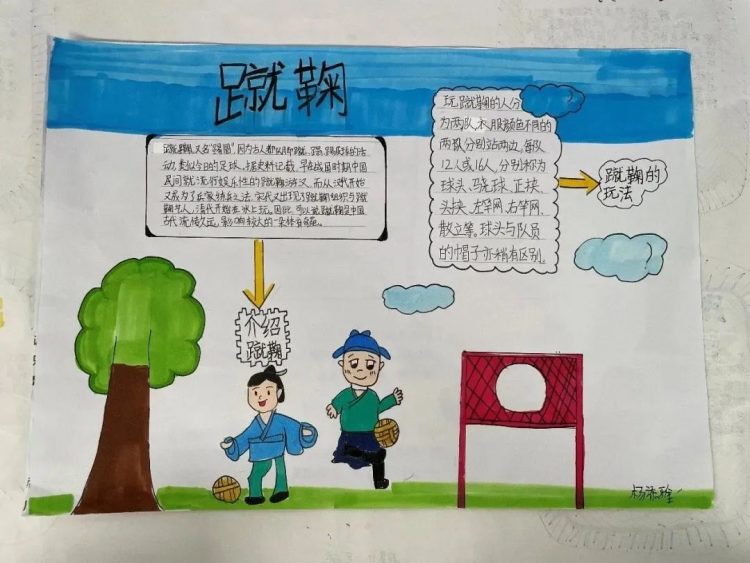 蹴鞠
蹴鞠,又名“蹋鞠”,因为古人都以用脚蹴、蹋、踢皮球的活
动,类似今日的足球。据史料记载,早在战国时期中国
民间就流行娱乐性的蹴鞠游戏,而从汉代开始
又成为了兵家练兵之法,宋代又出现了蹴鞠组织与蹴
鞠艺人,清代开始在冰上玩。因此,可以说蹴鞠是中国
古代流传久远,影响较大的一条体育
介绍
蹴鞠
玩蹴鞠的人分
为两队,衣服颜色不同的
两队分别站两边,每队
12人或16人,分别称为
球头、骁球、正挟、
头挟、左竿网、右竿网、
散立等。球头与队员
的帽子亦稍有区别。
蹴鞠的
玩法